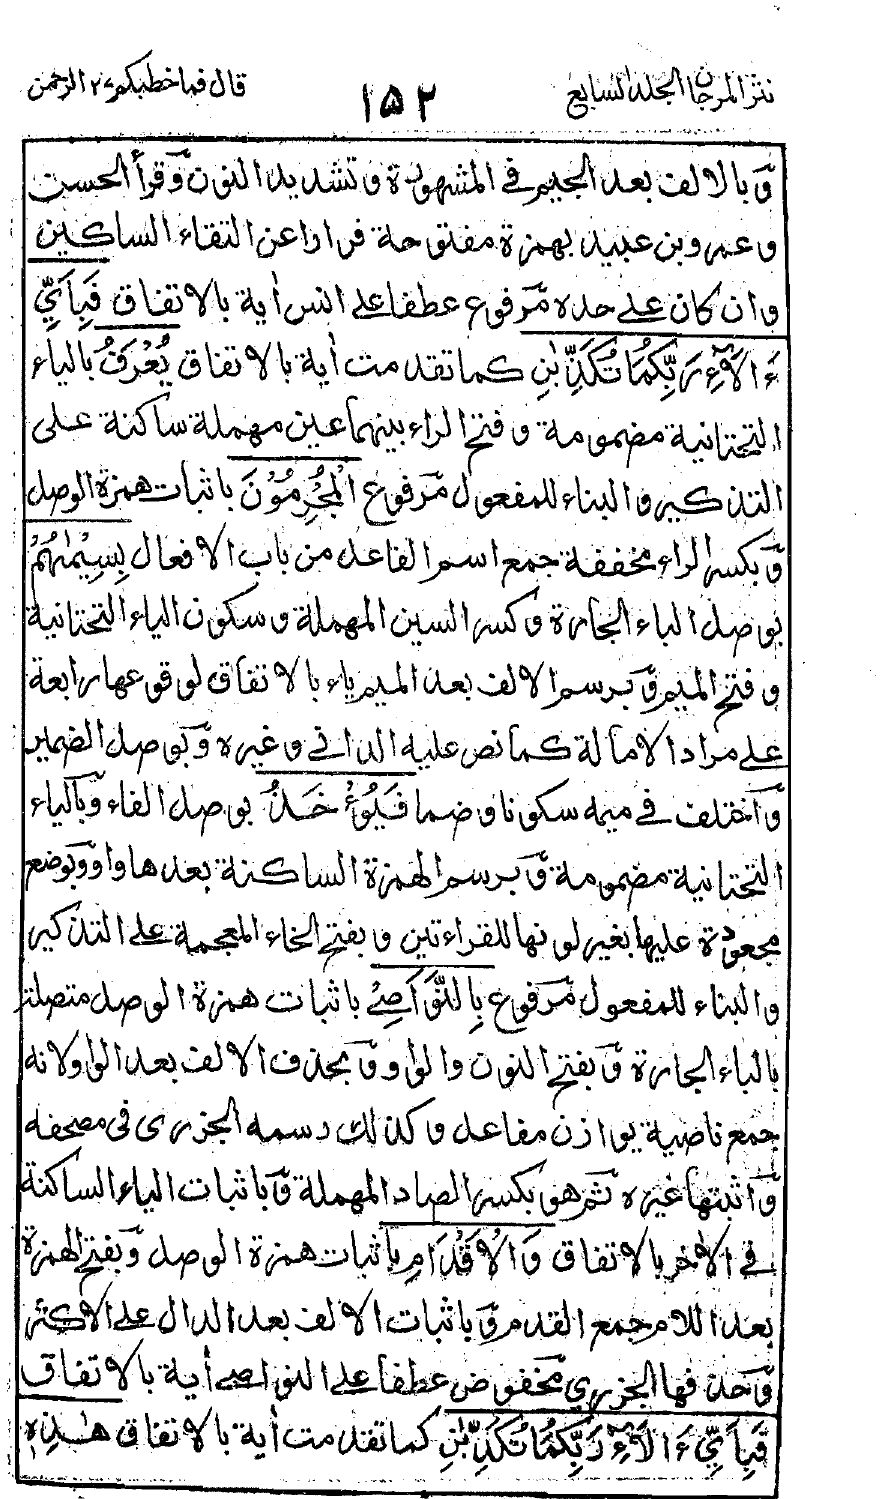 نثر المرجان الجلد السابع
١٥٢
قال فما خطبكم ٢٧ الرحمن
وَبالالف بعد الجيم في المشهورة وتشديد النون وَقرأ الحسن
وعمرو بن عبيد بهمزة مفتوحة فرارا عن التقاء الساكين
وان كان على حده مَرفوع عطفا على انس أية بالاتفاق فَبِاَيِّ
ءَالَآءِ رَبِّكُمَا تُكَذِّبٰنِ كما تقدمت أية بالاتفاق يُعْرَفُ بالياء
التحتانية مضمومة وفتح الراء بينهما عين مهملة ساكنة على
التذكير والبناء للمفعول مَرفوع الْمُجْرِمُوْنَ باثبات همزة الوصل
وَبكسر الراء مخففة جمع اسم الفاعل من باب الافعال بِسِيْمٰىهُمْ
بوصل الباء الجارة وَكسر السين المهملة وسكون الياء التحتانية
وفتح الميم وَبرسم الالف بعد الميم ياء بالاتفاق لوقوعها رابعة
على مراد الامالة كما نص عليه الداني وغيره وَبوصل الضمير
وَاختلف في ميمه سكونا وضما فَيُؤْخَذُ بوصل الفاء وَبالياء
التحتانية مضمومة وَبرسم الهمزة الساكنة بعدها واوًا وَبوضع
مجعودة عليها بغير لونها للقراءتين وبفتح الخاء المعجمة على التذكير
والبناء للمفعول مَرفوع بِالنَّوَاصِيْ باثبات همزة الوصل متصلة
بالباء الجارة وَبفتح النون والواو وَبحذف الالف بعد الواو لانه
جمع ناصية يوازن مفاعل وكذلك رسمه الجزري في مصحفه
وَاثبتها غيره ثم هو بكسر الصاد المهملة وَباثبات الياء الساكنة
في الأخر بالاتفاق وَالْاَقْدَامِ باثبات همزة الوصل وَبفتح الهمزة
بعد اللام جمع القدم وَباثبات الالف بعد الدال على الاكثر
وَحذفها الجزري مَخفوض عطفا على النواصي أية بالاتفاق
فَبِاَيِّ ءَالَآءِ رَبِّكُمَا تُكَذِّبٰنِ كما تقدمت أية بالاتفاق هٰذِهٖ